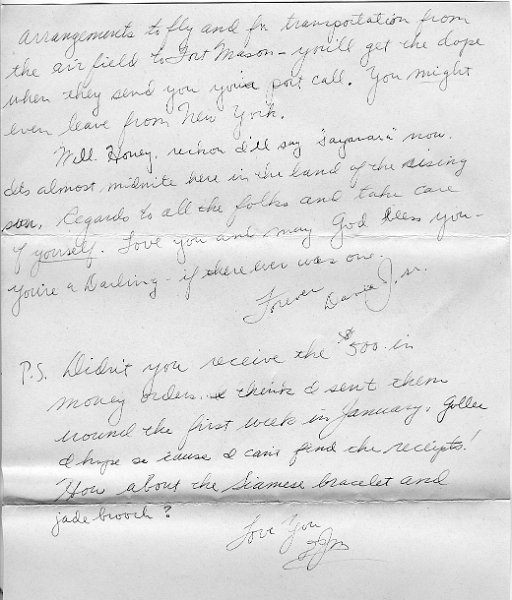 arrangements to fly and for transportation from
the air field to Fort Mason - you'll get the dope
when they send you your port call. You might
even leave from New York.
Well Honey, reckon I'll say "sayanara" now.
its almost midnite here in the land of the rising
sun. Regards to all the folks and take care
of yourself. Love you and may God bless you -
You're a Darling - if there ever was one.
Forever
P.S. Didn't you receive the $500 in
money orders. I think I sent them
around the first week in January. Gollee
I hope so cause I can't find the receipts!
How about the Siamese bracelet and
jade brooch?
Love You